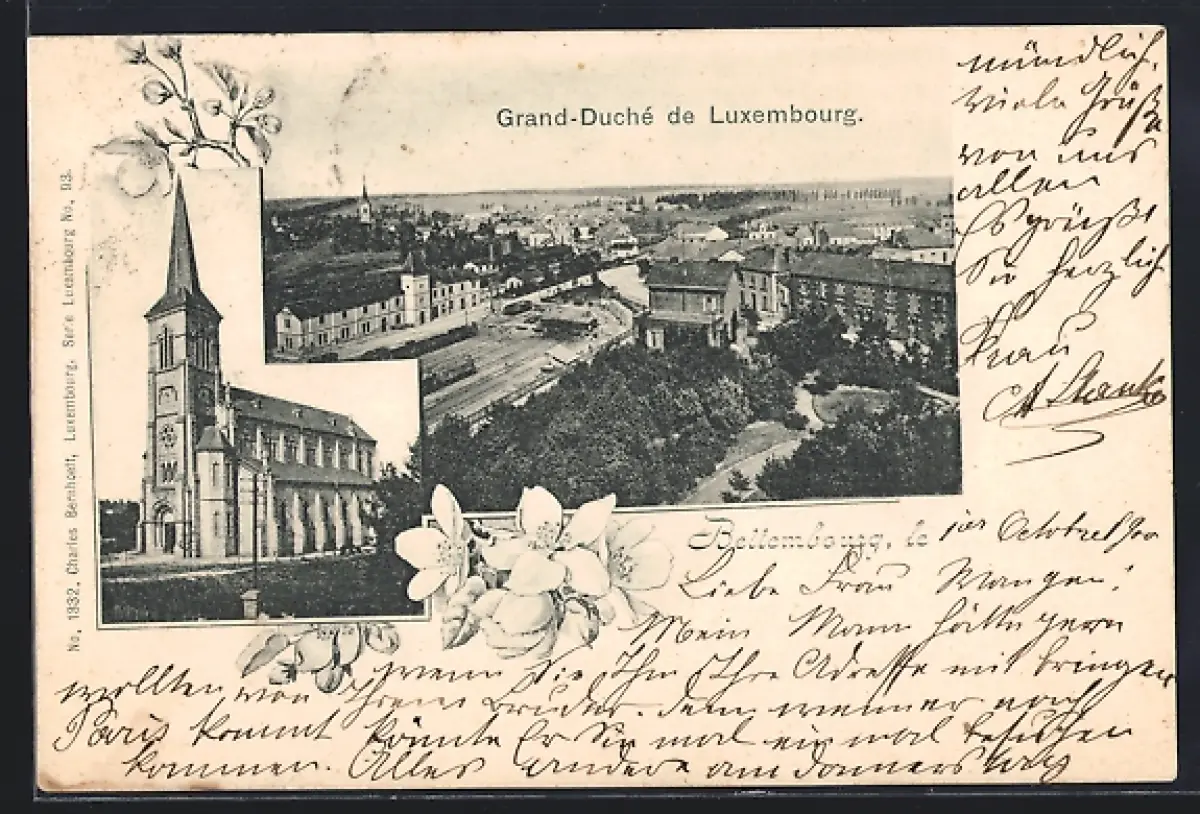 Grand-Duché de Luxembourg.
No. 1332, Charles Bernhoeft, Luxembourg. Serie Luxembourg No. 93.
Bettembourg, le 1er October 900
Liebe Frau Mangen!
Mein Mann hätte gern
wenn Sie Ihm Ihre Adresse mit bringen
wollten von Ihrem Bruder. denn wenn er nach
Paris kommt könnte Er Sie mal einmal besuchen
kommen. Alles andere am Donnerstag
mündlich.
Viele Grüße
von uns
allen
Es grüßt
Sie herzlich
Frau